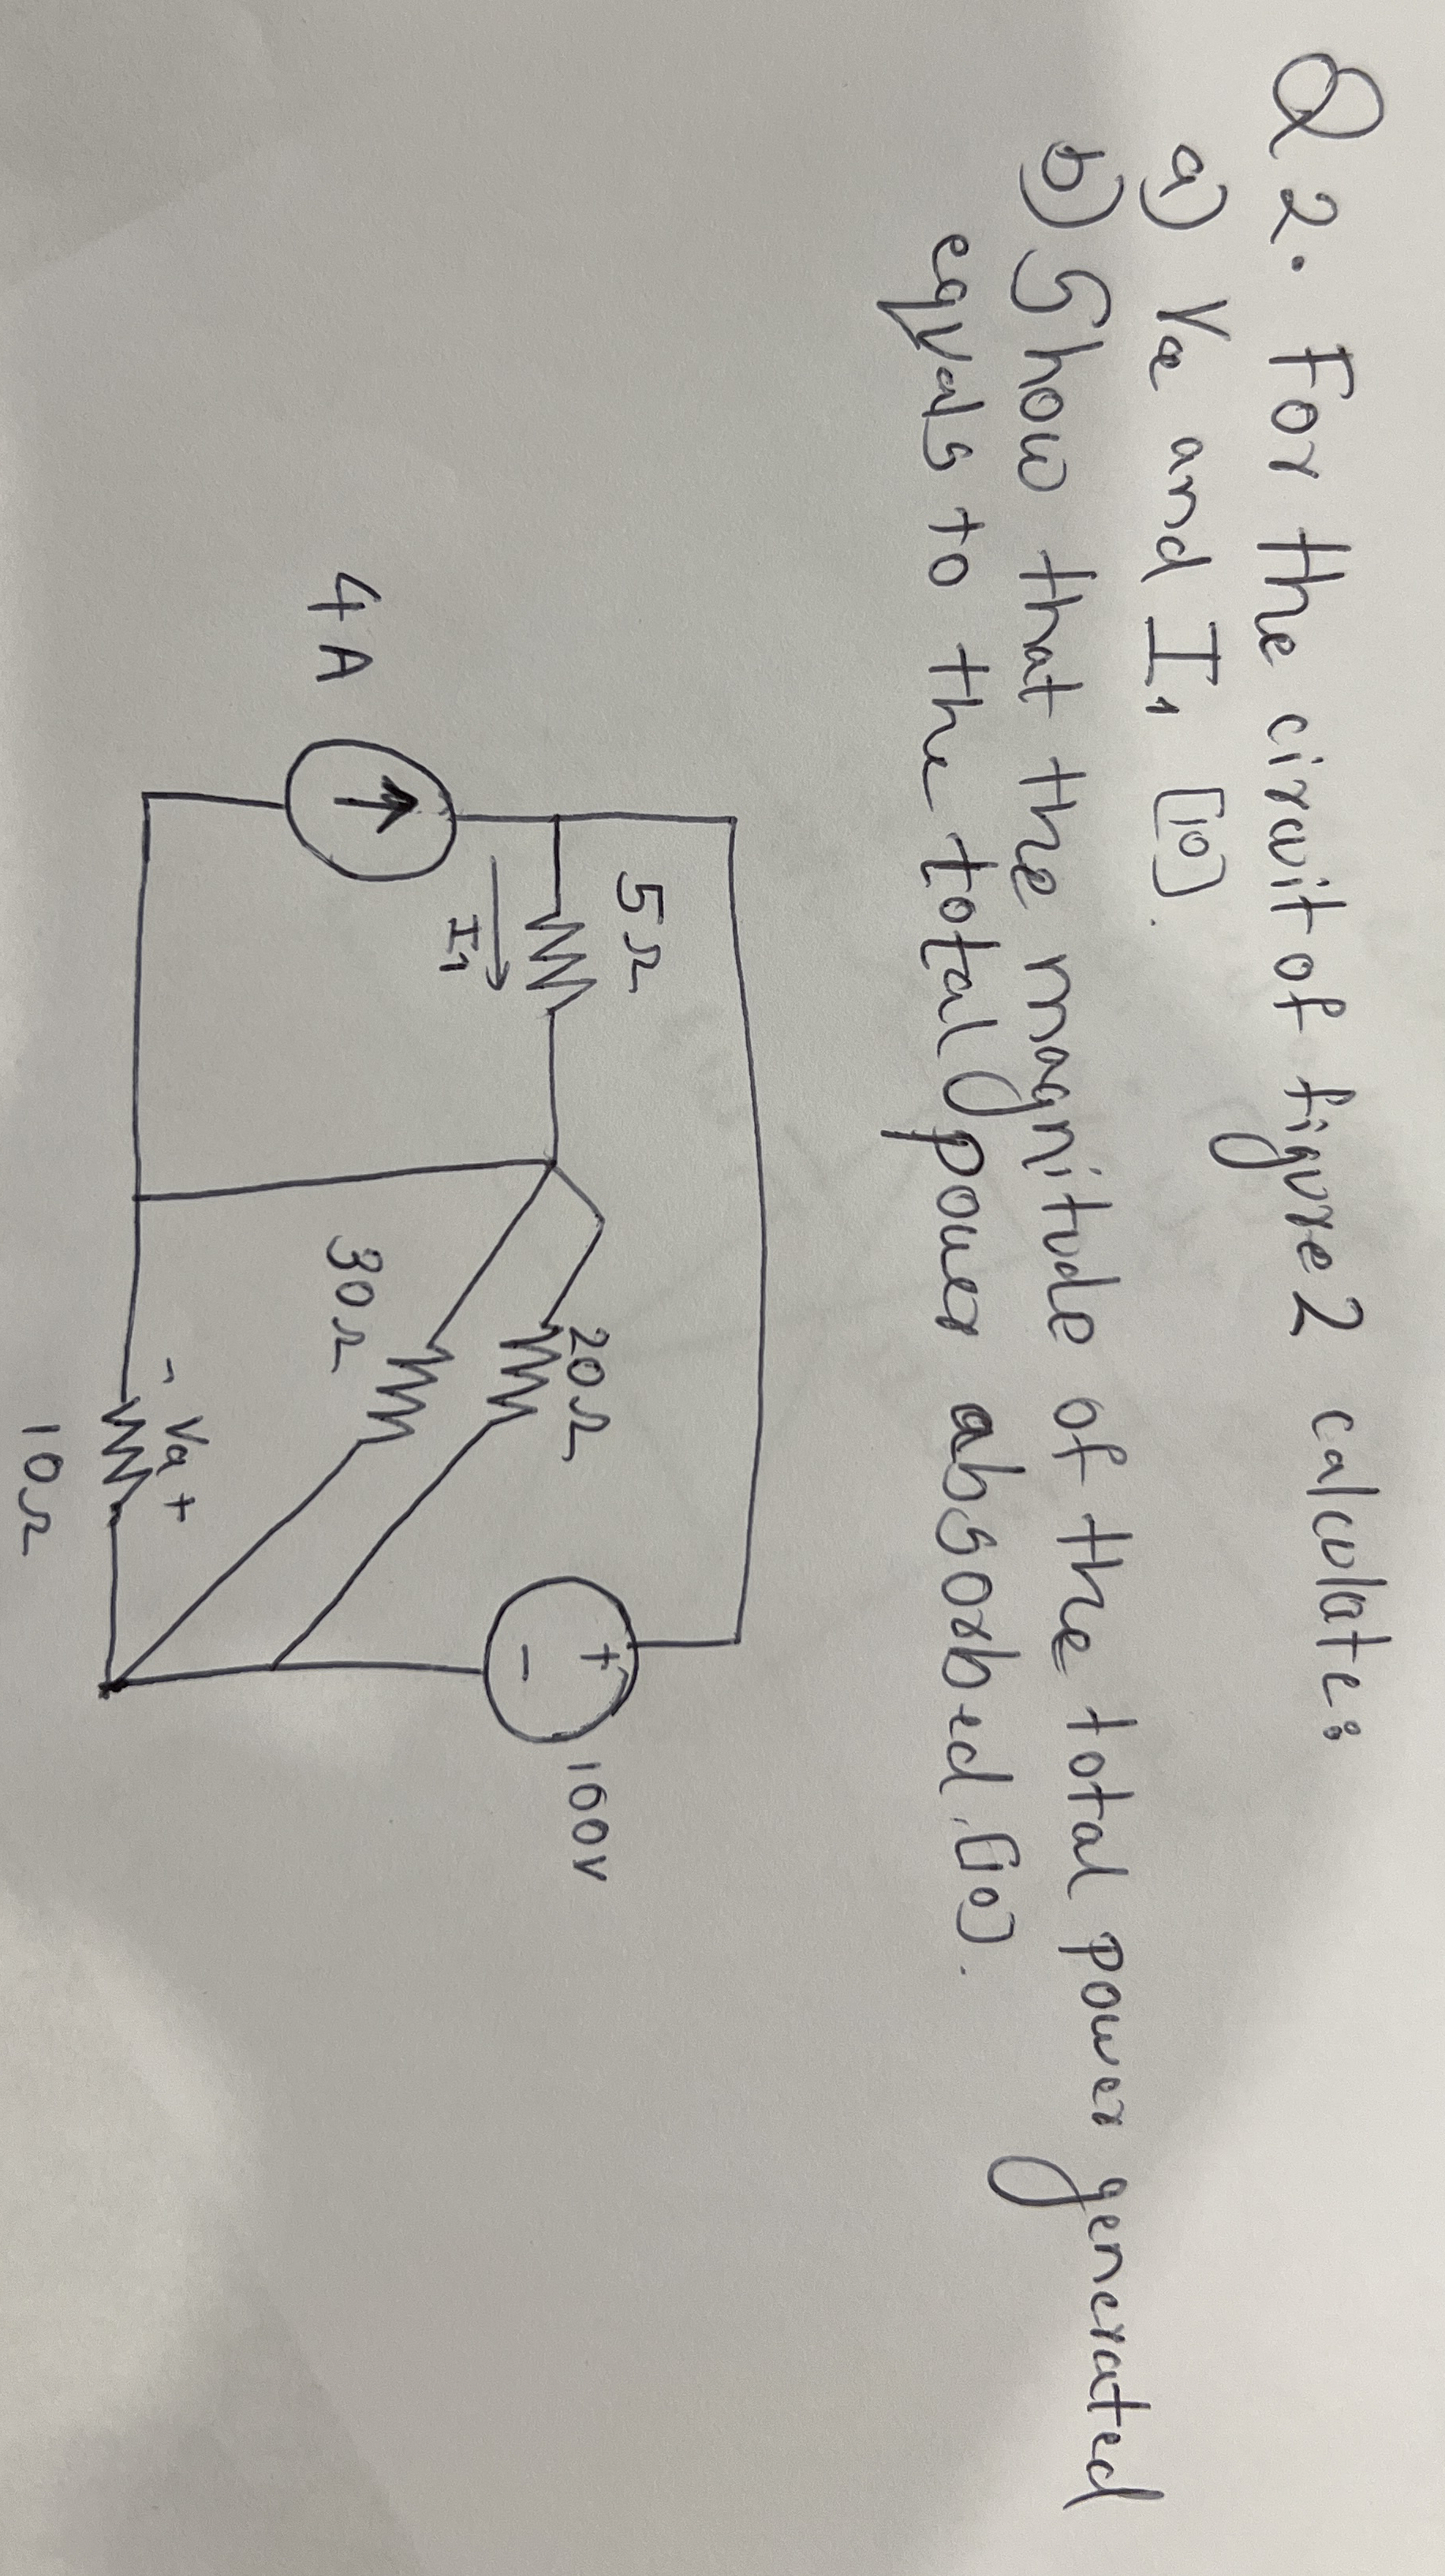 Q2. For the circuit of figure 2 calculate:
a) Va and I1 [10].
b) Show that the magnitude of the total power generated
equals to the total power absorbed. [10].
5Ω
I1
4A
20Ω
30Ω
+
-
100V
- Va +
10Ω